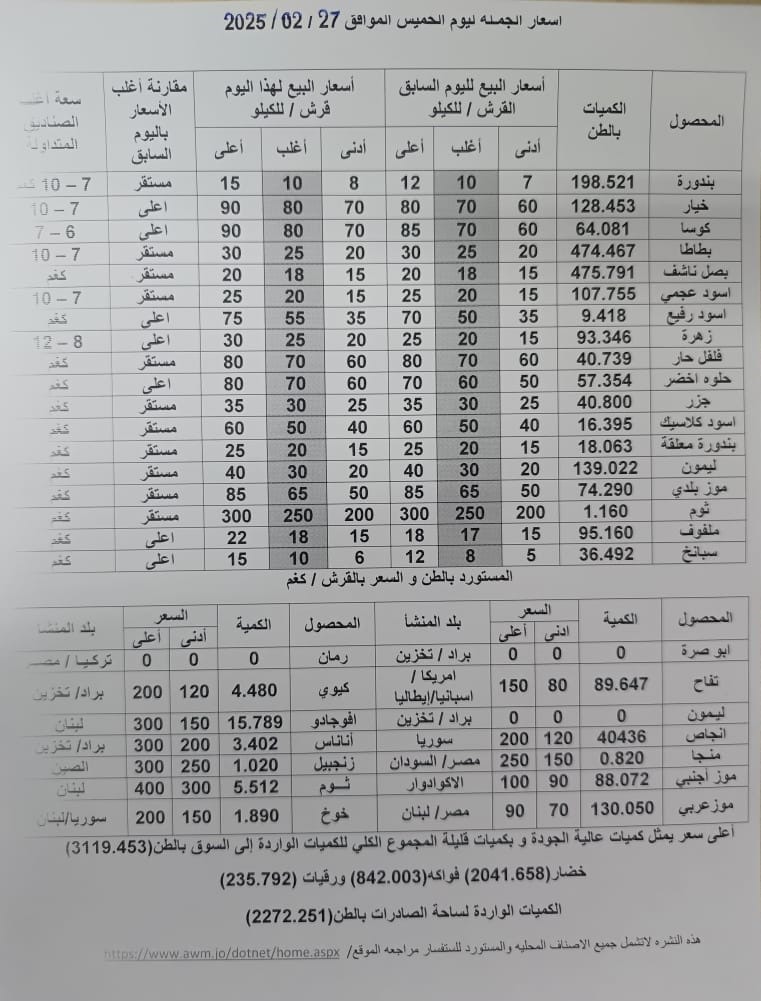 اسعار الجمله ليوم الخميس الموافق 27 / 02 / 2025
المحصول الكميات بالطن أسعار البيع لليوم السابق القرش / للكيلو أسعار البيع لهذا اليوم قرش / للكيلو مقارنة أغلب الأسعار باليوم السابق سعة أغلب الصناديق المتداولة
أدنى أغلب أعلى أدنى أغلب أعلى
بندورة 198.521 7 10 12 8 10 15 مستقر 7 – 10 كغم
خيار 128.453 60 70 80 70 80 90 اعلى 7 – 10
كوسا 64.081 60 70 85 70 80 90 اعلى 6 – 7
بطاطا 474.467 20 25 30 20 25 30 مستقر 7 – 10
بصل ناشف 475.791 15 18 20 15 18 20 مستقر كغم
اسود عجمي 107.755 15 20 25 15 20 25 مستقر 7 – 10
اسود رفيع 9.418 35 50 70 35 55 75 اعلى كغم
زهرة 93.346 15 20 25 20 25 30 اعلى 8 – 12
فلفل حار 40.739 60 70 80 60 70 80 مستقر كغم
حلوه اخضر 57.354 50 60 70 60 70 80 اعلى كغم
جزر 40.800 25 30 35 25 30 35 مستقر كغم
اسود كلاسيك 16.395 40 50 60 40 50 60 مستقر كغم
بندورة معلقة 18.063 15 20 25 15 20 25 مستقر كغم
ليمون 139.022 20 30 40 20 30 40 مستقر كغم
موز بلدي 74.290 50 65 85 50 65 85 مستقر كغم
ثوم 1.160 200 250 300 200 250 300 مستقر كغم
ملفوف 95.160 15 17 18 15 18 22 اعلى كغم
سبانخ 36.492 5 8 12 6 10 15 اعلى كغم
المستورد بالطن و السعر بالقرش / كغم
المحصول الكمية السعر بلد المنشأ المحصول الكمية السعر بلد المنشأ
ادنى أعلى أدنى أعلى
ابو صرة 0 0 0 براد / تخزين رمان 0 0 0 تركيا / مصر
تفاح 89.647 80 150 امريكا / اسبانيا/إيطاليا كيوي 4.480 120 200 براد/ تخزين
ليمون 0 0 0 براد / تخزين افوجادو 15.789 150 300 لبنان
انجاص 40436 120 200 سوريا أناناس 3.402 200 300 براد/ تخزين
منجا 0.820 150 250 مصر/ السودان زنجبيل 1.020 250 300 الصين
موز أجنبي 88.072 90 100 الاكوادوار ثوم 5.512 300 400 لبنان
موزعربي 130.050 70 90 مصر/ لبنان خوخ 1.890 150 200 سوريا/لبنان
أعلى سعر يمثل كميات عالية الجودة و بكميات قليلة المجموع الكلي للكميات الواردة إلى السوق بالطن(3119.453)
خضار(2041.658) فواكه(842.003) ورقيات (235.792)
الكميات الواردة لساحة الصادرات بالطن(2272.251)
هذه النشره لاتشمل جميع الاصناف المحليه والمستورد للستفسار مراجعه الموقع/ https://www.awm.jo/dotnet/home.aspx